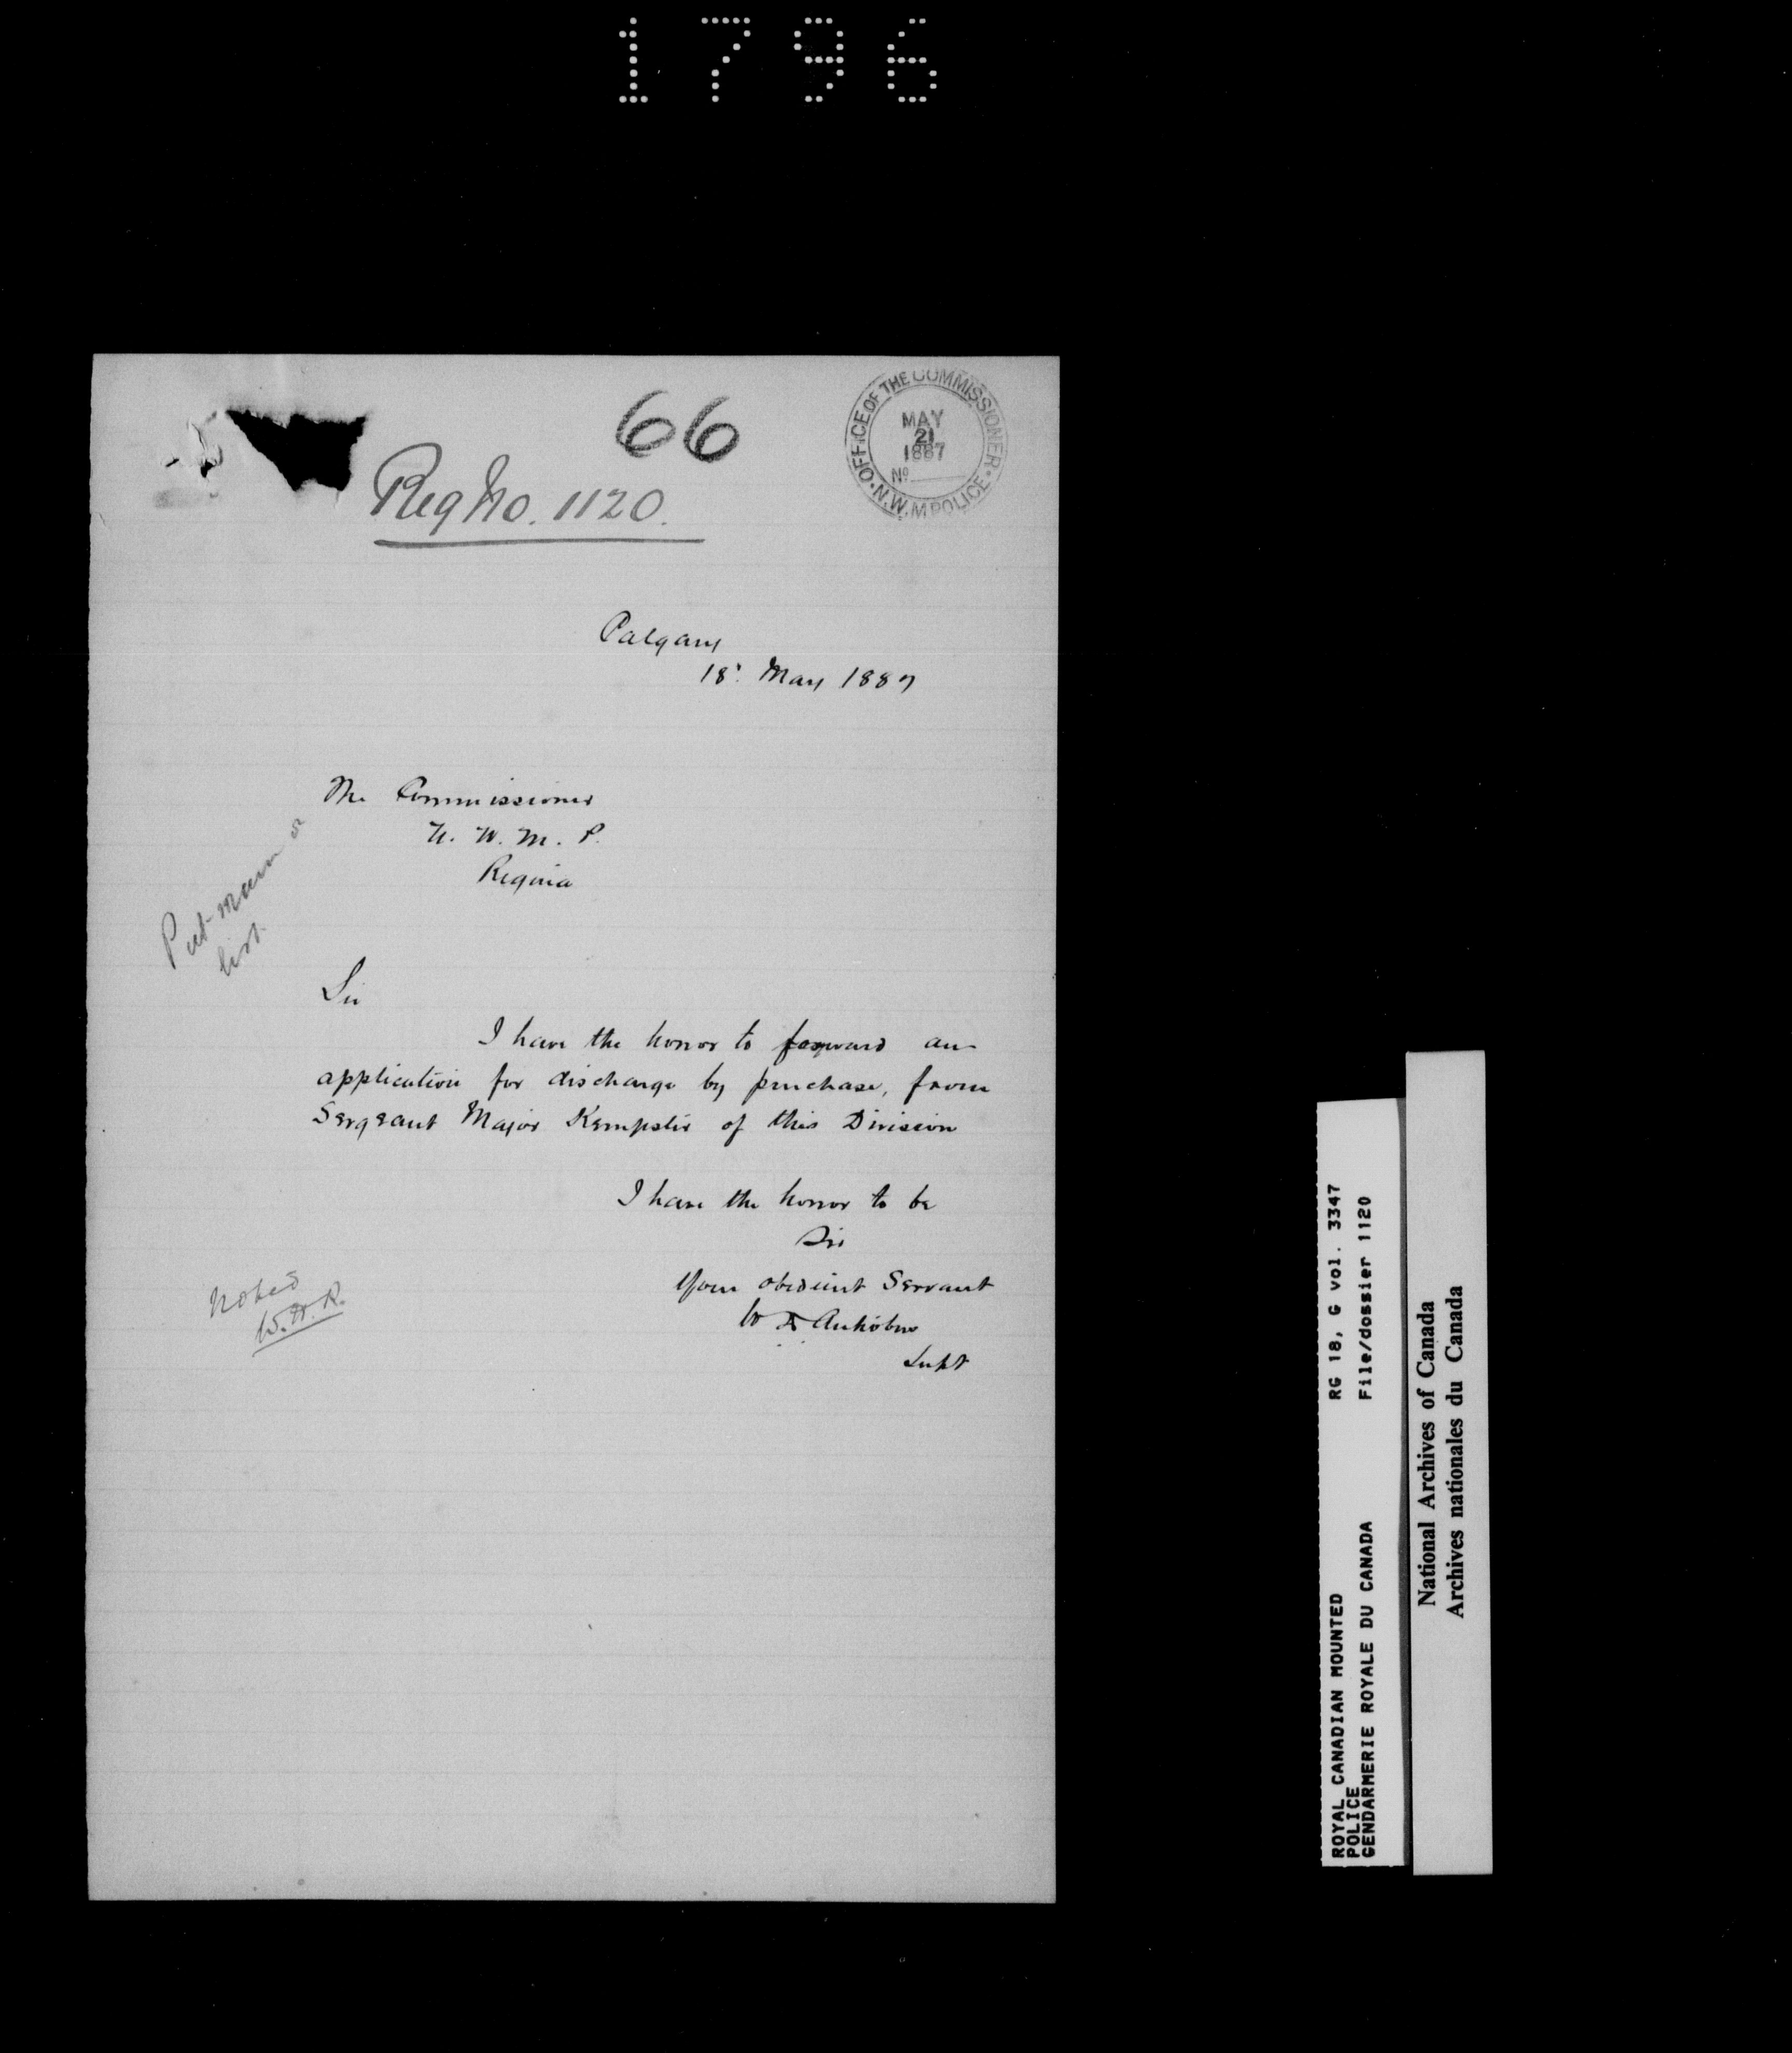 1796
66
OFFICE OF THE COMMISSIONER · N.W.M POLICE ·
MAY
21
1887
No
Reg No. 1120.
Calgary
18th May 1887
The Commissioner
N. W. M. P.
Regina
Put man on
list
Sir
I have the honor to forward an
application for discharge by purchase, from
Sergeant Major Kempster of this Division
I have the honor to be
Sir
Your obedient Servant
W Antrobus
Supt
Noted
RG 18, G vol. 3347
File/dossier 1120
ROYAL CANADIAN MOUNTED
POLICE
GENDARMERIE ROYALE DU CANADA
National Archives of Canada
Archives nationales du Canada